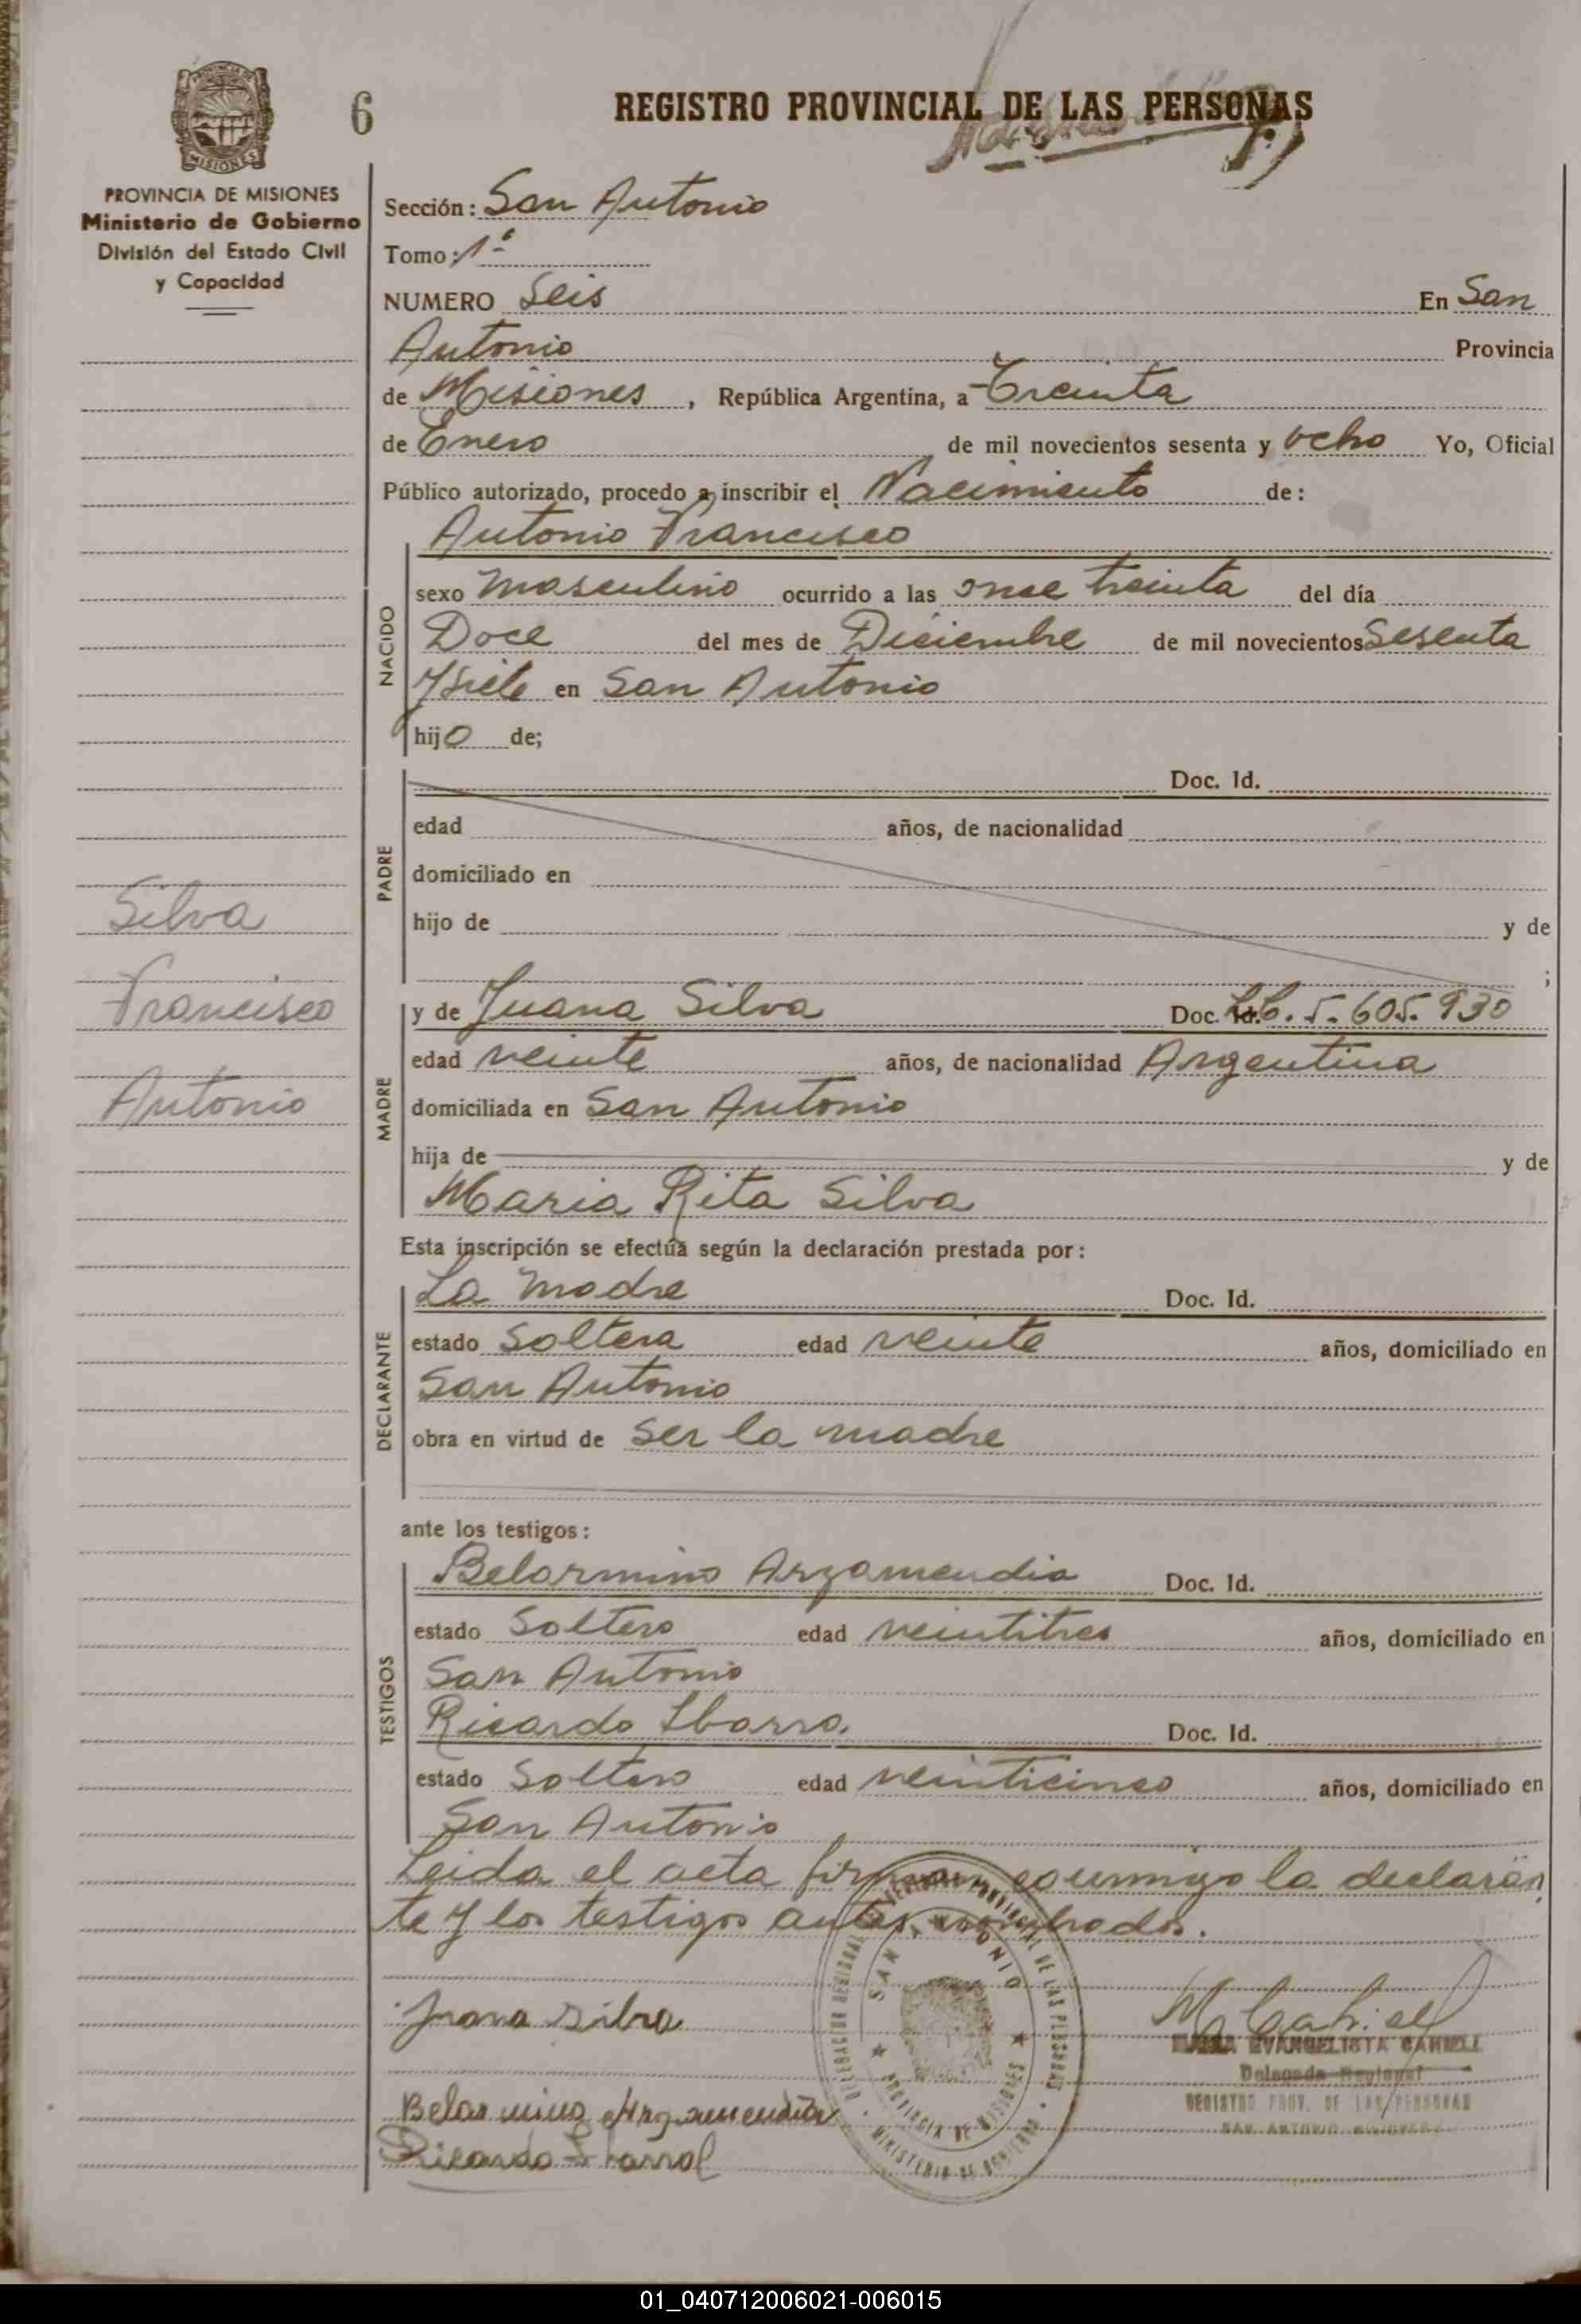 6
REGISTRO PROVINCIAL DE LAS PERSONAS
PROVINCIA DE MISIONES
Ministerio de Gobierno
División del Estado Civil
y Capacidad
Sección: San Antonio
Tomo: 1º
NUMERO Seis En San
Antonio Provincia
de Misiones, República Argentina, a Treinta
de Enero de mil novecientos sesenta y ocho Yo, Oficial
Público autorizado, procedo a inscribir el Nacimiento de:
NACIDO
Antonio Francisco
sexo masculino ocurrido a las once treinta del día
Doce del mes de Diciembre de mil novecientos Sesenta
y siete en San Antonio
hijo de;
PADRE
Doc. Id.
edad años, de nacionalidad
domiciliado en
hijo de y de
;
Silva
Francisco
Antonio
MADRE
y de Juana Silva Doc. Id. L.C. 5.605.930
edad veinte años, de nacionalidad Argentina
domiciliada en San Antonio
hija de y de
Maria Rita Silva
Esta inscripción se efectúa según la declaración prestada por:
DECLARANTE
La madre Doc. Id.
estado Soltera edad veinte años, domiciliado en
San Antonio
obra en virtud de ser la madre
ante los testigos:
TESTIGOS
Belarmino Arzamendia Doc. Id.
estado Soltero edad veintitres años, domiciliado en
San Antonio
Ricardo Ibarra Doc. Id.
estado Soltero edad veinticinco años, domiciliado en
San Antonio
Leida el acta firman conmigo la declaran
te y los testigos antes nombrados.
Juana Silva
Belarmino Arzamendia
Ricardo Ibarra
SAN ANTONIO
PROVINCIA DE MISIONES
MINISTERIO DE GOBIERNO
EVANGELISTA
Delegada Regional
REGISTRO PROV. DE LAS PERSONAS
SAN ANTONIO MISIONES
01_040712006021-006015